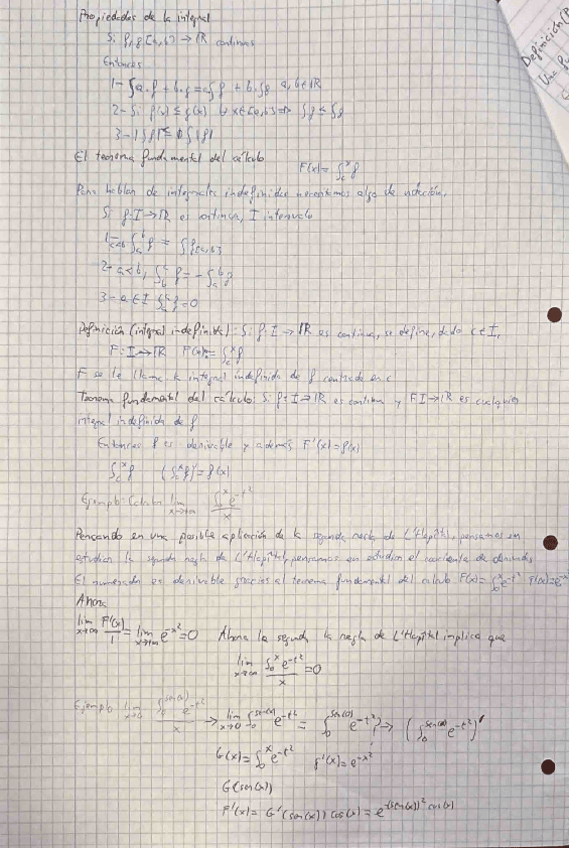 Propiedades de la integral
Si f,g [a,b] → ℝ continuas
Entonces
1- ∫a·f + b·g = a∫f + b·∫g a,b∈ℝ
2- Si f(x) ≤ g(x) ∀x∈[a,b] => ∫f ≤ ∫g
3- |∫f| ≤ ∫|f|
El teorema fundamental del cálculo F(x)= ∫_c^x f
Para hablar de integrales indefinidas necesitamos algo de notación.
Si f:I→ℝ es continua, I intervalo
1- a<b ∫_a^b f = ∫f[a,b]
2- a<b, ∫_b^a f = -∫_a^b f
3- a∈I ∫_a^a f=0
Definición (integral indefinida): Si f:I→ℝ es continua, se define, dado c∈I,
F:I→ℝ F(x):= ∫_c^x f
F se le llama la integral indefinida de f centrada en c
Teorema fundamental del cálculo: Si f:I→ℝ es continua y F:I→ℝ es cualquier
integral indefinida de f
Entonces f es derivable y además F'(x)=f(x)
∫_c^x f (∫_c^x f)'=f(x)
Ejemplo: Calcular lim x→+∞ ∫_0^x e^-t² / x
Pensando en una posible aplicación de la segunda regla de L'Hôpital, pensamos en
estudiar la segunda regla de L'Hôpital, pensamos en estudiar el cociente de derivadas
El numerador es derivable gracias al teorema fundamental del calculo F(x)= ∫_0^x e^-t² F'(x)=e^-x²
Ahora
lim x→+∞ F'(x)/1 = lim x→+∞ e^-x² =0 Ahora la segunda la regla de L'Hôpital implica que
lim x→+∞ ∫_0^x e^-t² / x =0
Ejemplo lim x→0 ∫_0^sen(x) e^-t² / x → lim x→0 ∫_0^sen(x) e^-t² = ∫_0^sen(0) e^-t² → (∫_0^sen(x) e^-t²)'
G(x)= ∫_0^x e^-t² g'(x)= e^-x²
G(sen(x))
F'(x)= G'(sen(x)) cos(x)= e^-(sen(x))² cos(x)
Definición (
Una fu